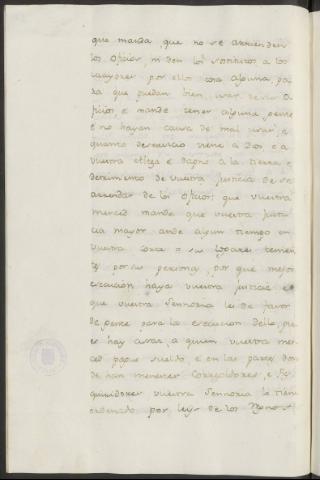 que manda, que no se arrienden
los oficios, ni den los sostitutos a los
mayores por ello cosa alguna, pa
ra que puedan bien usar de sus o
ficios, e mande tener alguna pena
e no hayan causa de mal usar, e
quanto deservicio viene a Dios e a
vuestra Alteza e dapno a la tierra e
detrimento de vuestra justicia de se
arrendar de los oficios; que vuestra
merced mande que vuestra justi
cia mayor ande algun tiempo en
vuestra corte e sus logares tenien
tes por su persona, por que mejor
execucion haya vuestra justicia e
que vuestra Sennoria le de favor
de gente para la execucion della, pu
es hay asaz a quien vuestra mer
ced pague sueldo, e en las partes don
de han menester Corregidores, e Es
quisidores vuestra Sennoria lo tiene
ordenado por leys de los Regnos